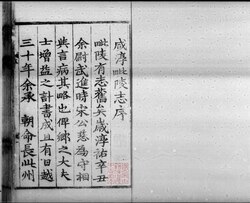 咸淳毗陵志序
毗陵有志舊矣歲淳祐辛丑
余尉武進時宋公慈為守相
與言病其略也俾鄉之大夫
士增益之計書成且有日越
三十年余承　朝命長此州